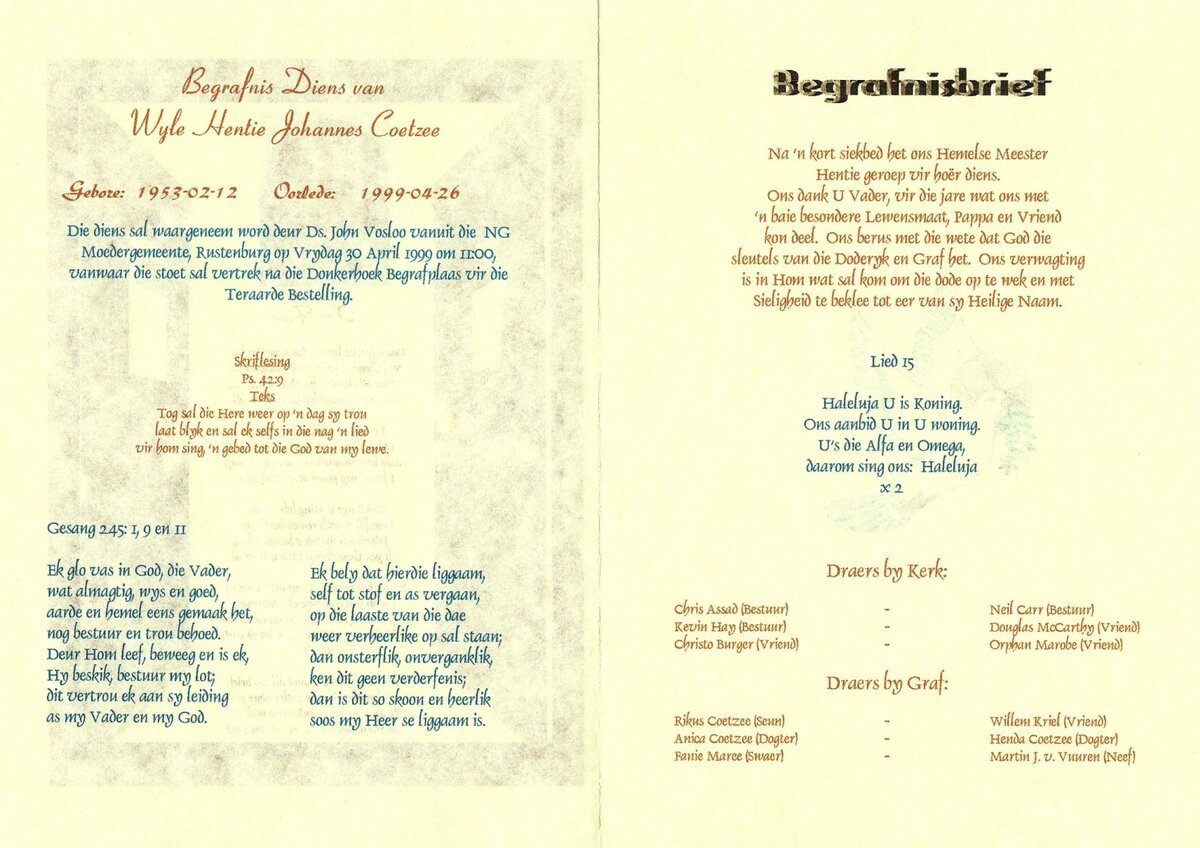 Begrafnis Diens van
Wyle Hentie Johannes Coetzee
Gebore: 1953-02-12 Oorlede: 1999-04-26
Die diens sal waargeneem word deur Ds. John Vosloo vanuit die NG
Moedergemeente, Rustenburg op Vrydag 30 April 1999 om 11:00,
vanwaar die stoet sal vertrek na die Donkerhoek Begrafplaas vir die
Teraarde Bestelling.
Skriflesing
Ps. 42:9
Teks
Tog sal die Here weer op 'n dag sy trou
laat blyk en sal ek selfs in die nag 'n lied
vir hom sing, 'n gebed tot die God van my lewe.
Gesang 245: 1, 9 en 11
Ek glo vas in God, die Vader,
wat almagtig, wys en goed,
aarde en hemel eens gemaak het,
nog bestuur en trou behoed.
Deur Hom leef, beweeg en is ek,
Hy beskik, bestuur my lot;
dit vertrou ek aan sy leiding
as my Vader en my God.
Ek bely dat hierdie liggaam,
self tot stof en as vergaan,
op die laaste van die dae
weer verheerlike op sal staan;
dan onsterflik, onverganklik,
ken dit geen verderfenis;
dan is dit so skoon en heerlik
soos my Heer se liggaam is.
Begrafnisbrief
Na 'n kort siekbed het ons Hemelse Meester
Hentie geroep vir hoër diens.
Ons dank U Vader, vir die jare wat ons met
'n baie besondere Lewensmaat, Pappa en Vriend
kon deel. Ons berus met die wete dat God die
sleutels van die Doderyk en Graf het. Ons verwagting
is in Hom wat sal kom om die dode op te wek en met
Sieligheid te beklee tot eer van sy Heilige Naam.
Lied 15
Haleluja U is Koning.
Ons aanbid U in U woning.
U's die Alfa en Omega,
daarom sing ons: Haleluja
x 2
Draers by Kerk:
Chris Assad (Bestuur) - Neil Carr (Bestuur)
Kevin Hay (Bestuur) - Douglas McCarthy (Vriend)
Christo Burger (Vriend) - Orphan Marobe (Vriend)
Draers by Graf:
Rikus Coetzee (Seun) - Willem Kriel (Vriend)
Anica Coetzee (Dogter) - Henda Coetzee (Dogter)
Fanie Maree (Swaer) - Martin J. v. Vuuren (Neef)